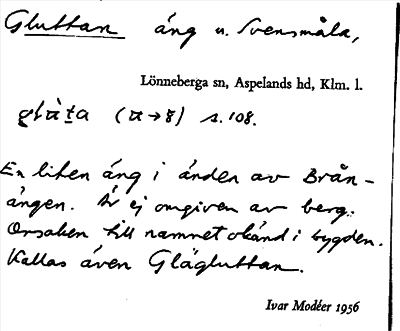 Gluttan äng u. Svensmåla,
Lönneberga sn, Aspelands hd, Klm. l.
s. 108.
En liten äng i änden av Brån-
ängen. Är ej omgiven av berg.
Orsaken till namnet okänd i bygden.
Kallas även Glägluttan.
Ivar Modéer 1956